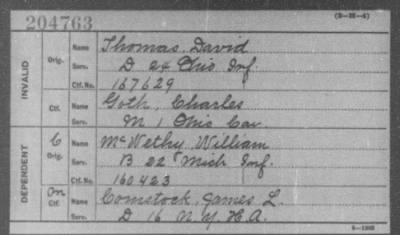 204763
(3-25-4)
INVALID
Orig.
Name Thomas, David
Serv. D 24 Ohio Inf.
Ctf. No. 167629
Ctf.
Name Goth, Charles
Serv. M 1 Ohio Cav.
DEPENDENT
C
Orig.
Name McWethy, William
Serv. B 22 Mich Inf.
Ctf. No. 160423
On
Ctf.
Name Comstock, James L.
Serv. D 16 N.Y. H.A.